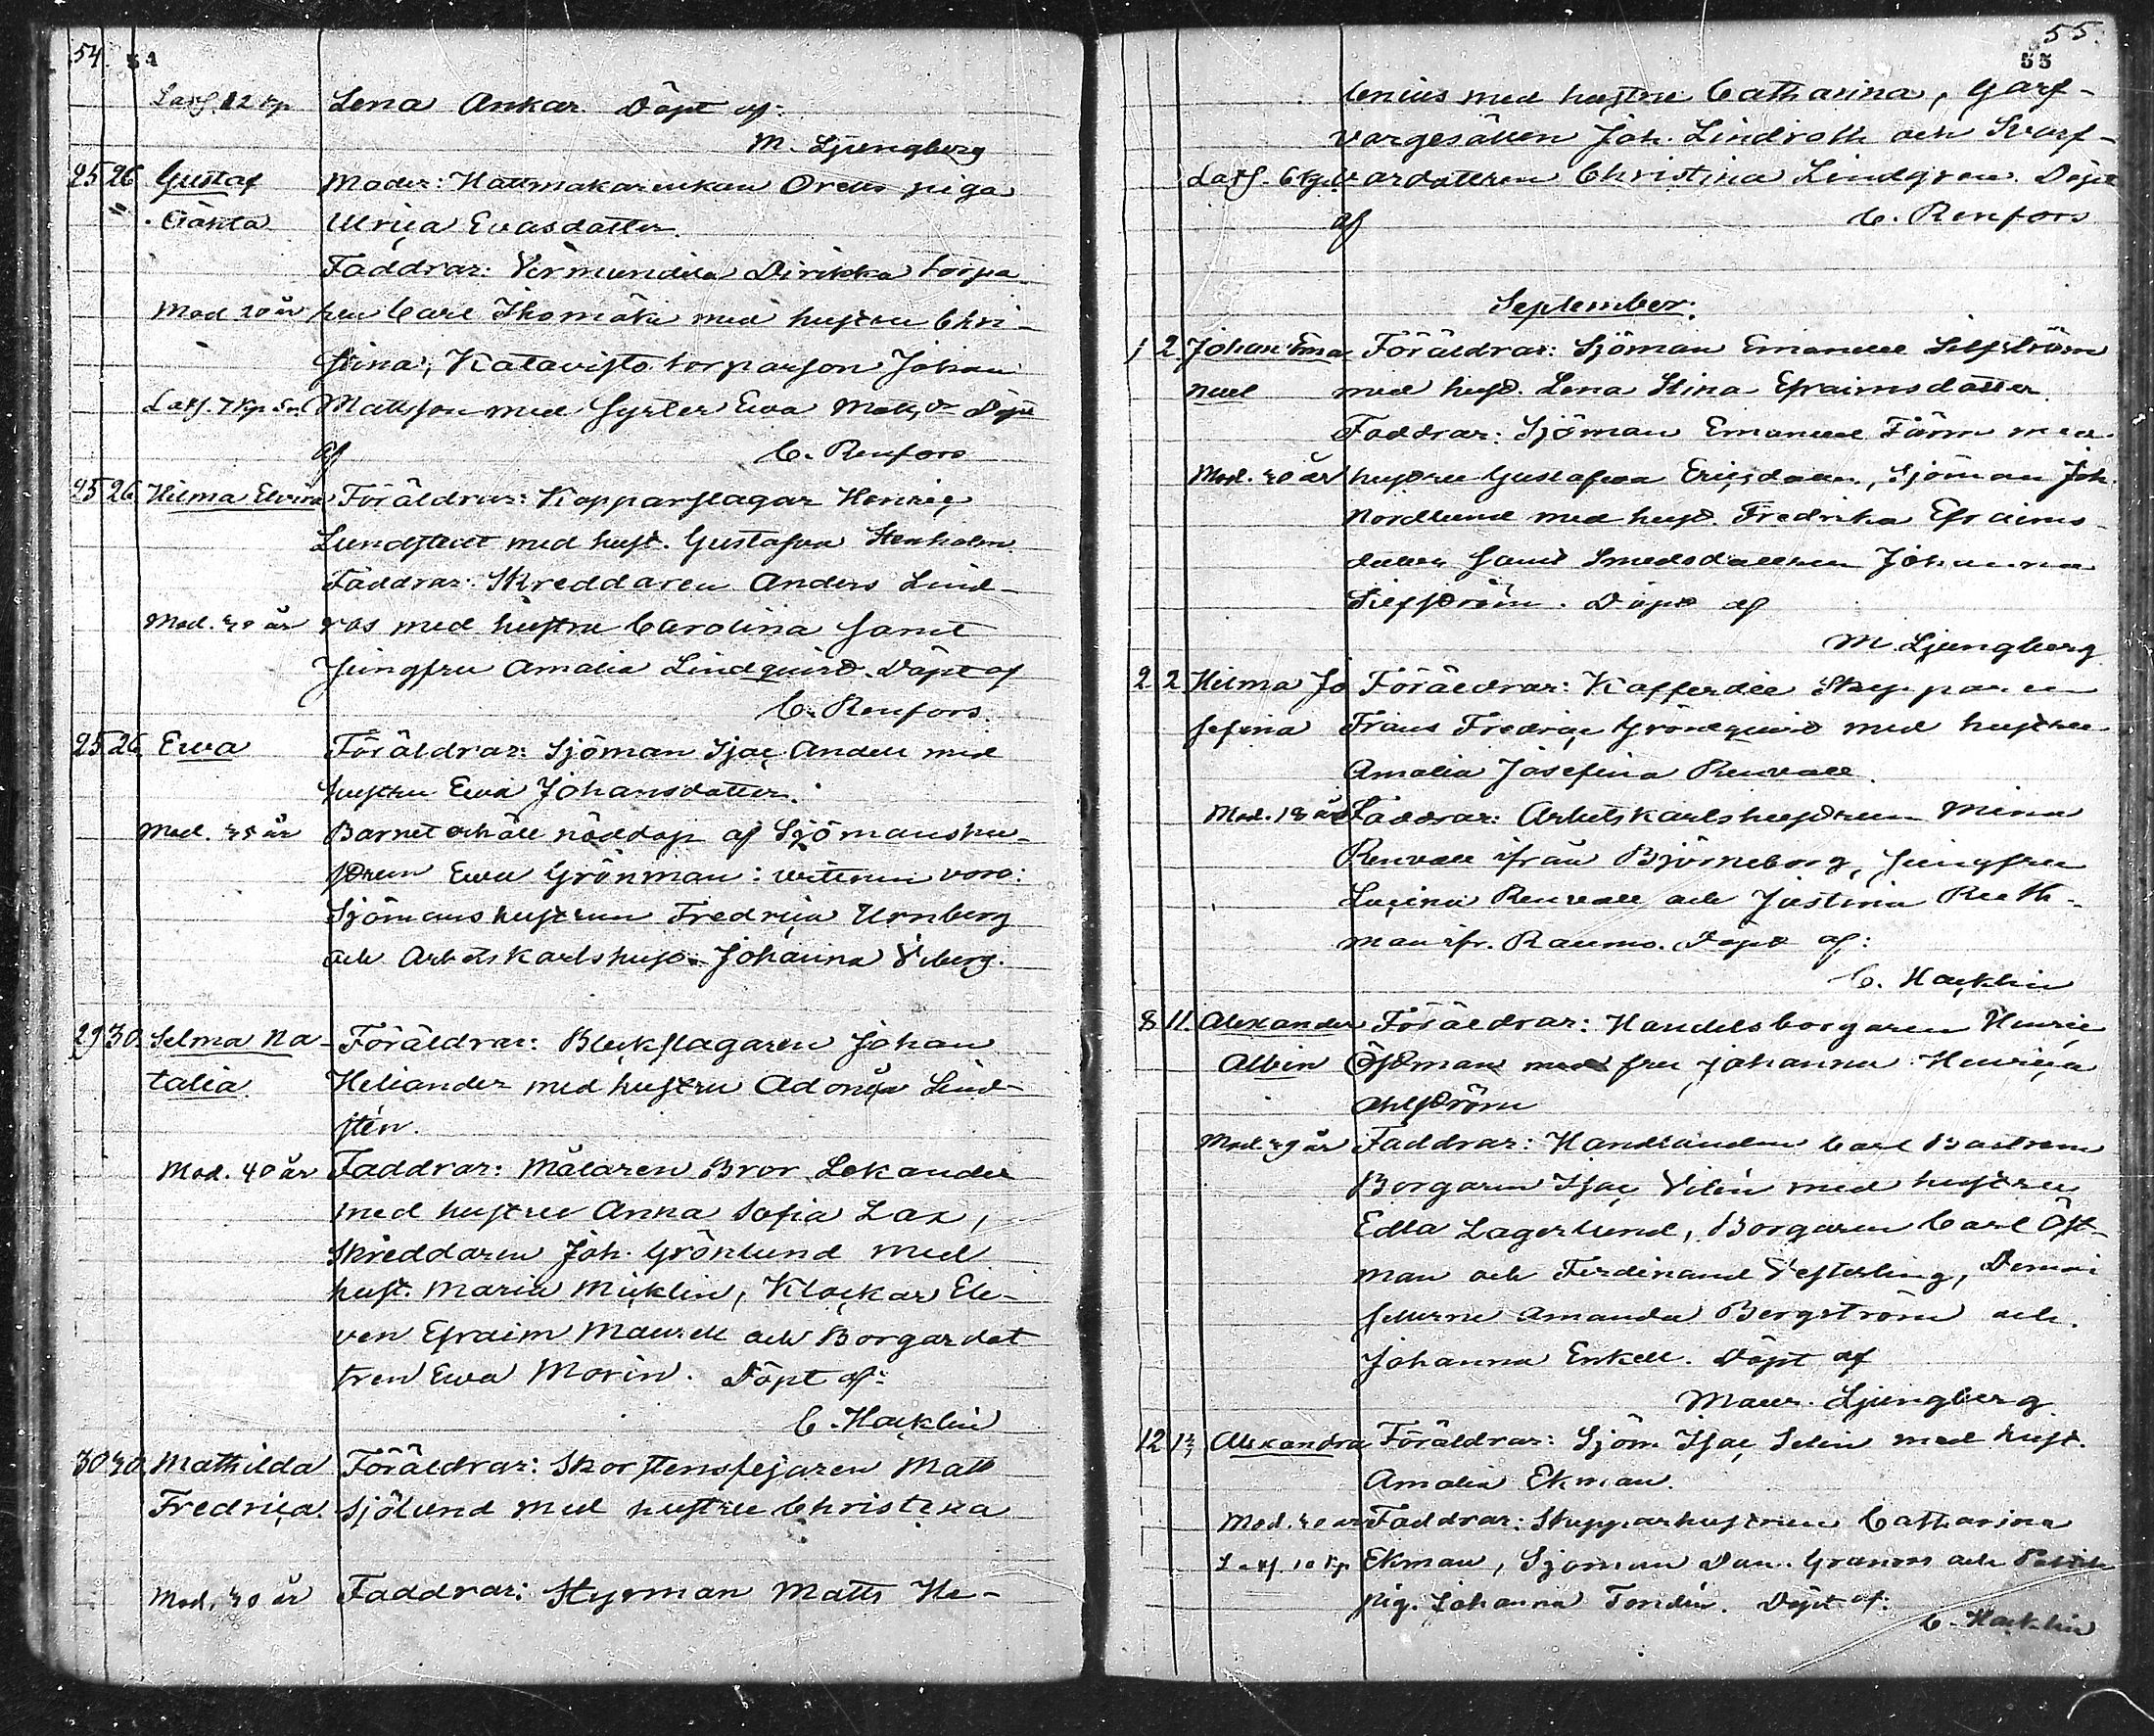 54. 54
Lösf. 12 kp Lena Ankar Döpt af:
M. Ljungberg
25 26 Gustaf Moder: Hattmakarenkan piga
Oäkta Ulrica Evasdotter.
Faddrar: Vermundila Dirikka torpa
Mod 20 år ren Carl Thomökr med hustru Chri-
stina, Katavisto torparson Johan
Lösf. 7 kp Mattsson med syster Eva Matts dr Döpt
af C. Renfors
25 26 Hilma Elvira Föräldrar: Kopparslagar Henric
Lundstedt med hust. Gustafva Stenholm.
Faddrar: Skreddaren Anders Lind-
Mod. 30 år ros med hustru Carolina samt
Jungfru Amalia Lindquist. Döpt af
C. Renfors.
25 26. Ewa Föräldrar: Sjöman Isac Andell med
hustru Ewa Johansdotter.
Mod. 35 år Barnet erhöll nöddop af Sjömanshu-
strun Ewa Grönman: vittnen voro:
Sjömanshustrun Fredrica Urnberg
och Arbetskarlshust. Johanna Viberg.
29 30. Selma Na- Föräldrar: Bleckslagaren Johan
talia. Heliander med hustru Adonia Lind-
stén.
Mod. 40 år Faddrar: Målaren Bror Lekander
med hustru Anna Sofia Lax,
Skreddaren Joh. Grönlund med
hust. Maria Micklin, Klockar Ele-
ven Efraim Maurell och Borgardot
tren Ewa Morin. Döpt af:
C. Hacklin
30 30. Mathilda Föräldrar: Skorstensfejaren Matts
Fredrica. Sjölund med hustru Christina
Mod. 30 år Faddrar: Styrman Matts He-
55.
55
lenius med hustru Catharina, Garf-
vargesällen Joh. Lindroth och Svarf-
Lösf. 6 kp. vardottren Christina Lindgren. Döpt
af C. Renfors
September.
1 2. Johan Ema Föräldrar: Sjöman Emanuel Silfström
nuel med hust. Lena Stina Efraimsdotter.
Faddrar: Sjöman Emanuel Färm med
Mod. 30 år hustru Gustafva Ericsdotter, Sjöman Joh.
Nordlund med hust. Fredrika Efraims-
dotter samt Smedsdottren Johanna
Silfström. Döpt af
M. Ljungberg
2 2 Hilma Jo Föräldrar: Kofferdie Skepparen
sefina Frans Fredric Grönquist med hustru
Amalia Josefina Renvall.
Mod. 18 år Faddrar: Arbetskarlshustrun Mina
Renvall ifrån Björneborg, Jungfru
Lucina Renvall och Justina Reth-
man ifr. Raumo. Döpt af:
C. Hacklin
8 11. Alexander Föräldrar: Handelsborgaren Henric
Albin Östman med fru Johanna Henrica
Ahlström
Mod. 29 år Faddrar: Handlanden Carl Bastrom
Borgaren Isac Vilén med hustru
Edla Lagerlund, Borgaren Carl Öst-
man och Ferdinand Vesterling, Demoi
sellerne Amanda Bergström och
Johanna Enkell. Döpt af
Maur. Ljungberg
12 13 Alexandra Föräldrar: Sjöm. Isac Selin med hust.
Amalia Ekman.
Mod. 30 år Faddrar: Skepparhustrun Catharina
Lösf. 10 kp Ekman, Sjöman Dan. Granroos och
pig. Johanna Tondén. Döpt af:
C. Hacklin